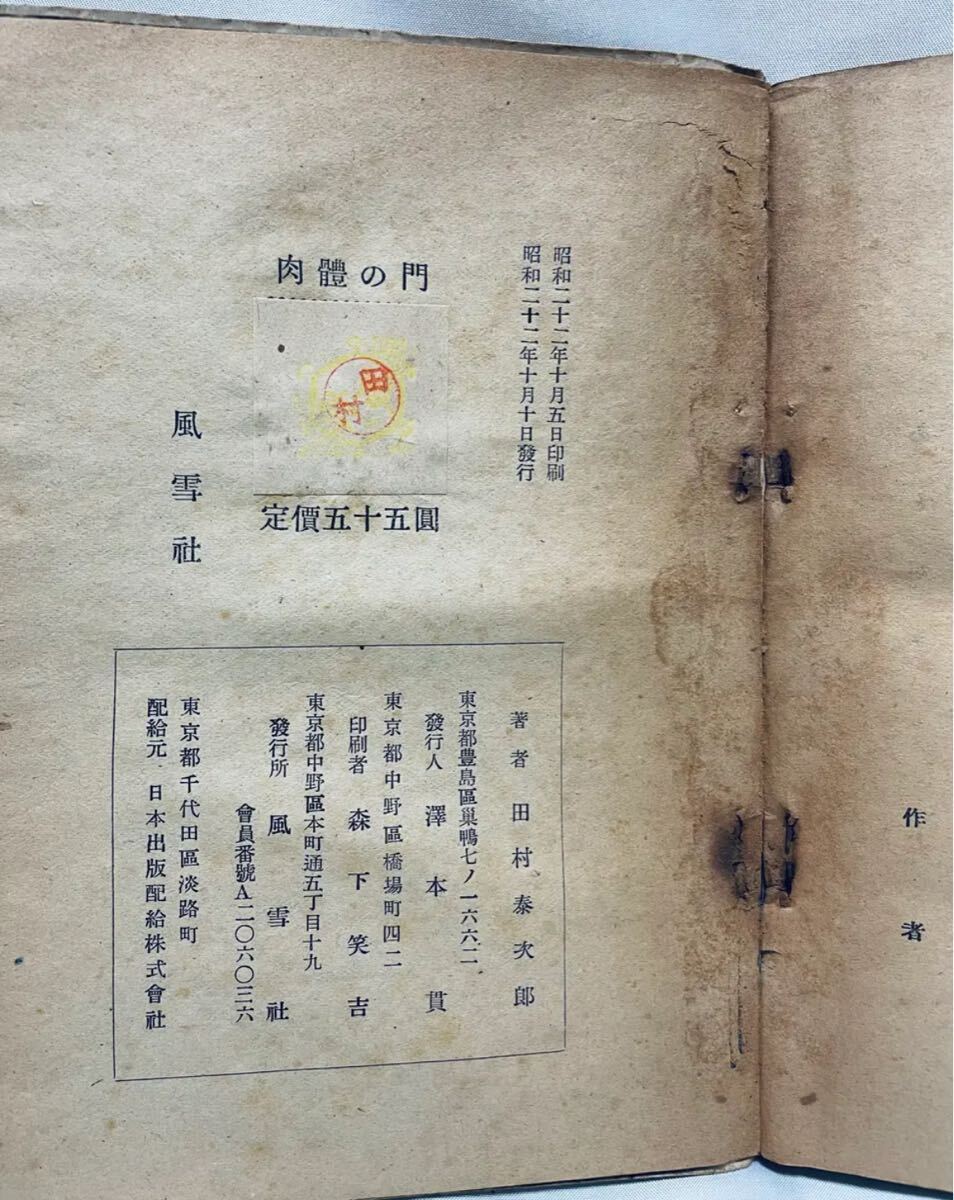 作者
昭和二十二年十月五日印刷
昭和二十二年十月十日發行
肉體の門
田村
定價五十五圓
風雪社
著者 田村泰次郎
東京都豊島區巢鴨七ノ一六六二
發行人 澤本貫
東京都中野區橋場町四二
印刷者 森下笑吉
東京都中野區本町通五丁目十九
發行所 風雪社
會員番號A二〇六〇三六
東京都千代田區淡路町
配給元 日本出版配給株式會社